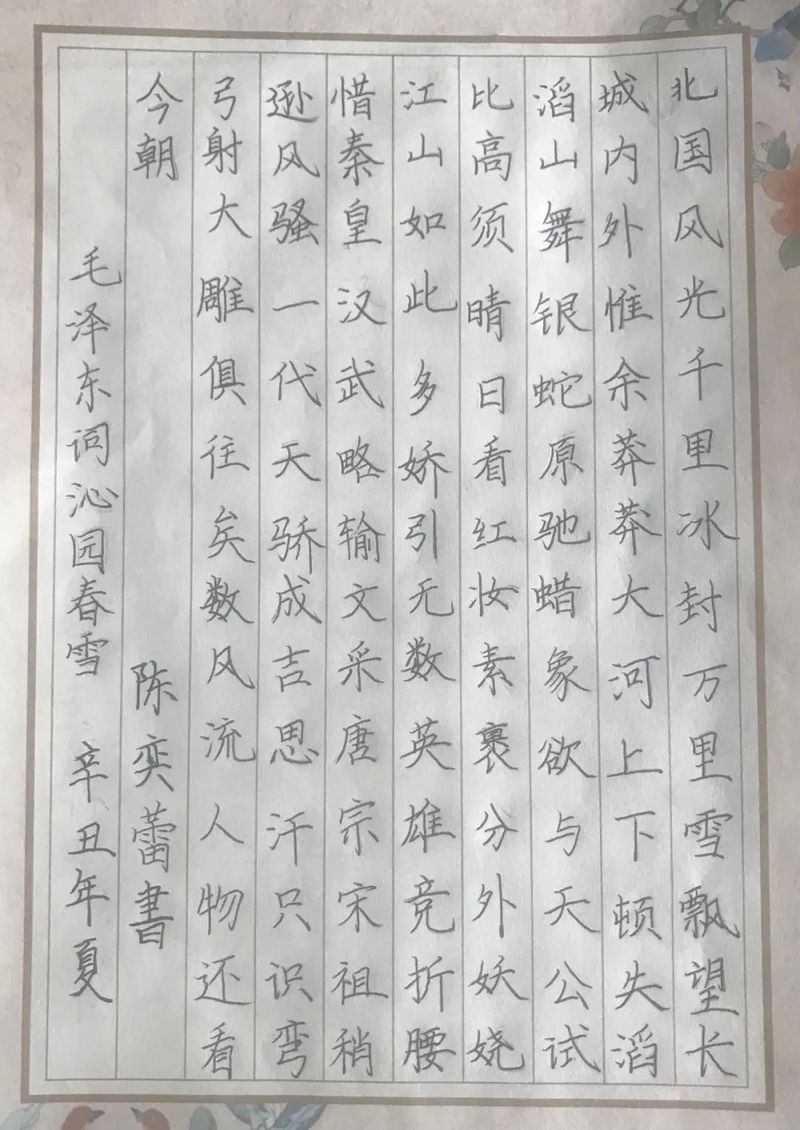 北国风光千里冰封万里雪飘望长
城内外惟余莽莽大河上下顿失滔
滔山舞银蛇原驰蜡象欲与天公试
比高须晴日看红妆素裹分外妖娆
江山如此多娇引无数英雄竞折腰
惜秦皇汉武略输文采唐宗宋祖稍
逊风骚一代天骄成吉思汗只识弯
弓射大雕俱往矣数风流人物还看
今朝 陈奕蕾書
毛泽东词沁园春雪 辛丑年夏